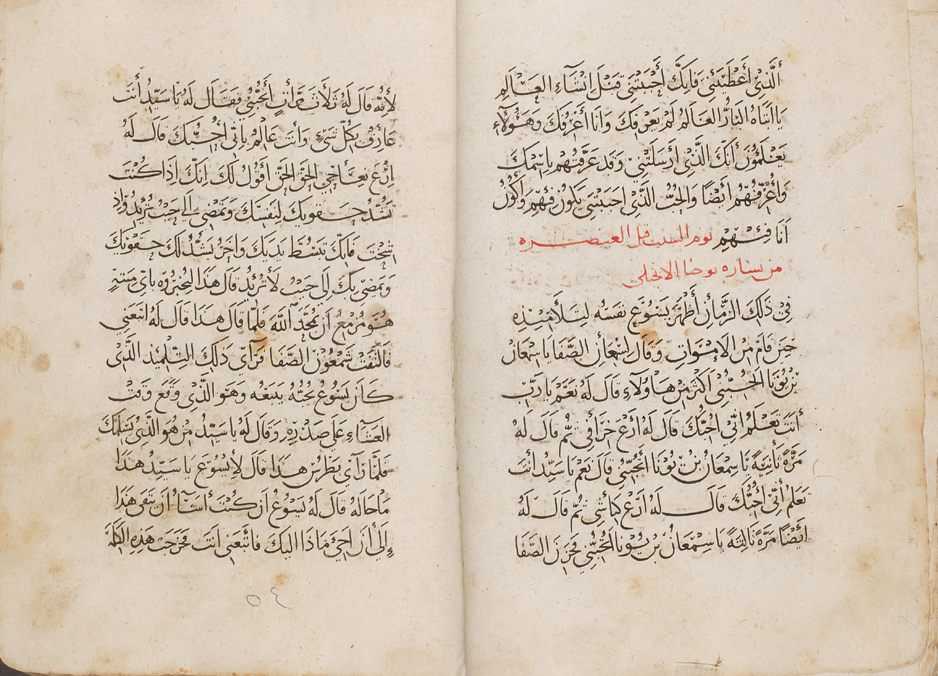 الَّذِي أَعْطَيْتَنِي فَإِنَّكَ أَحْبَبْتَنِي قَبْلَ إِنْشَاءِ العَالَمِ
يَا ابَتَاهُ البَارُّ العَالَمُ لَمْ يَعْرِفْكَ وَانَا أَعْرِفُكَ وَهَؤُلَاءِ
يَعْلَمُونَ أَنَّكَ الَّذِي أَرْسَلْتَنِي وَقَد عَرَّفْتُهُم بِاسْمِكَ
وَأُعَرِّفُهُم أَيْضًا وَالحُبُّ الَّذِي احبَبْتَنِي يَكُونُ فِيْهِم وَأَكُونُ
أَنَا فِيْهِم يوم السبت قبل العنصره
من بشاره يوحنا الانجيلي
فِي ذَلِكَ الزَّمَانِ أَظْهَرَ يَسُوْعُ نَفْسَهُ لِتَلَامِيْذِهِ
حِيْنَ قَامَ مِنَ الامْوَاتِ وَقَالَ لِسمْعَانَ الصَّفَا يَا سمْعَانُ
بْنَ يُوْنَا اتُحِبُّنِي اكْثَرَ مِنْ هَاؤُلَاءِ قَالَ لَهُ نَعَمْ يَا رَبّ
أَنتَ تَعْلَمُ أَنِّي احِبُّكَ قَالَ لَهُ أَرْعَ خِرَافِي ثُمَّ قَالَ لَهُ
مَرَّةً ثَانِيَةً يَا سِمْعَانُ بْنَ يُوْنَا اتُحِبُّنِي قَالَ نَعَمْ يَا سَيِّدُ انْتَ
تعلَم أَنِّي احِبُّكَ قَالَ لَهُ أَرْعَ كِبَاشِي ثُمَّ قَالَ لَهُ
أَيْضًا مَرَّة ثَالِثَةً يَا سِمْعَانُ بْنَ يُونَا اتُحِبُّنِي فَحَزِنَ الصَّفَا
لِأَنَّهُ قَالَ لَهُ ثَلَاثَ مَرَّاتٍ أَتُحِبُّنِي فَقَالَ لَهُ يَا سَيِّدُ أَنتَ
عَارِفٌ بِكُلِّ شَيْءٍ وَأَنتَ عَالِمٌ بِأَنِّي أُحِبُّكَ قَالَ لَهُ
ارْعَ نِعَاجِي الحَقَّ الحَقَّ أَقُولُ لَكَ انَّكَ اِذَا كُنْتَ
تَشُدُّ حَقوَيكَ لِنَفْسِكَ وَتَمْضِي الَى حَيْثُ تُرِيْدُ وَاِذَا
شِخْتَ فَانَّكَ تَبْسُطُ يَدَيْكَ وَاخَرُ يَشُدُّ لَكَ حَقْوَيْكَ
وَيَمضِي بِكَ اِلَى حَيْثُ لَا تُرِيْدُ قَالَ هَذَا لِيُخْبِرَ بِأَي مِيْتَةٍ
هُوَ مُزمِعٌ أَنْ يُمَجِّدَ اللهَ فَلَمَّا قَالَ هَذَا قَالَ لَهُ اتْبَعْنِي
فَالتَفَتَ شَمْعُونُ الصَّفَا فَرَأَي ذَلِكَ التِّلْمِيْذَ الَّذِي
كَانَ يَسُوْعُ يُحِبُّهُ يَتْبَعُهُ وَهُوَ الَّذِي وَقَعَ وَقْتَ
العَشَاءِ عَلَى صَدْرِهِ وَقَالَ لَهُ يَا سَيِّدُ مَنْ هُوَ الَّذِي يُسْلِمُكَ
فَلَمَّا رَآي بُطْرُسُ هَذَا قَالَ لِيَسُوْعَ يَا سَيِّدُ هَذَا
مَا حَالُهُ قَالَ لَهُ يَسُوْعُ اَن كُنْتُ أَشَاءُ انْ يَبْقَى هَذَا
اِلَى أَنْ اجِيْ مَاذَا الَيْكَ فَاتْبَعْنِي انْتَ فَخَرَجَتْ هَذِهِ الكَلِمَةُ
٥٤